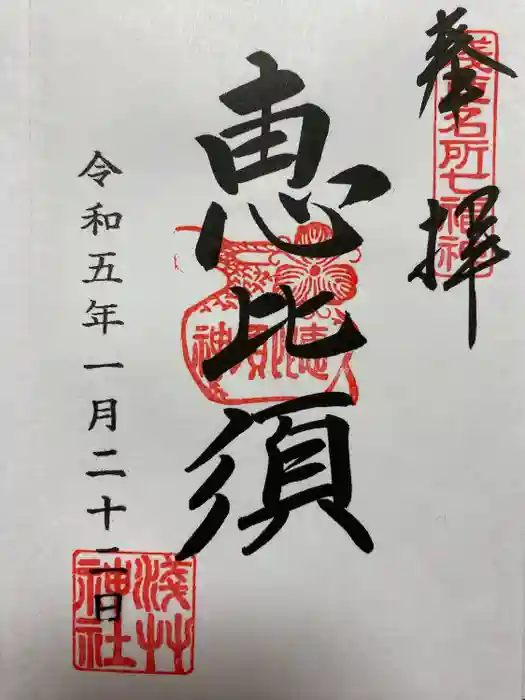 奉拝
浅草名所七福神
恵比須
恵比須神
令和五年一月二十二日
浅草神社